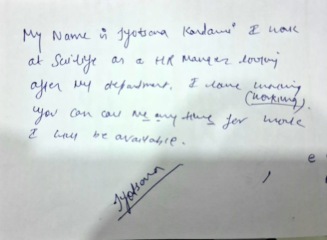 My Name is Jyotsana Kardam I work
at Scilife as a HR Manger looking
after My department. I love working
(working).
You can call me any time for work
I will be available.
Jyotsana
e